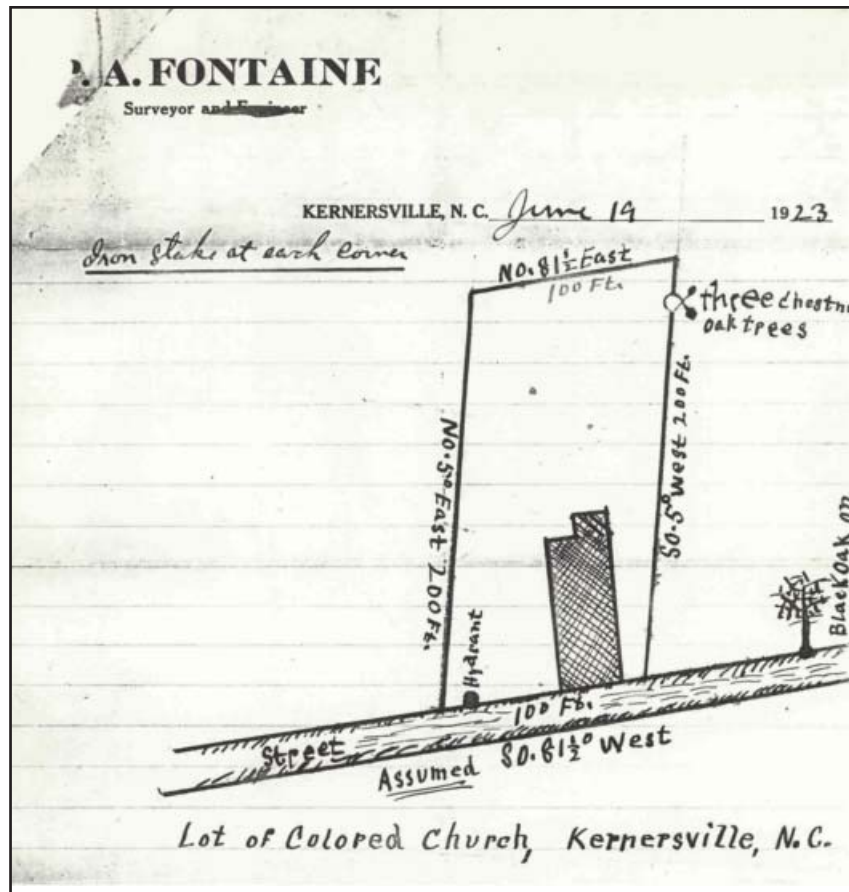 . A. FONTAINE
Surveyor and Engineer
KERNERSVILLE, N. C. June 19 1923
Iron Stake at each Corner
No. 81½ East
100 Ft.
three chestn
oak trees
No. 5° East 200 Ft.
So. 5° West 200 Ft.
Black Oak on
Hydrant
100 Ft.
Street
So. 81½° West
Assumed
Lot of Colored Church, Kernersville, N.C.